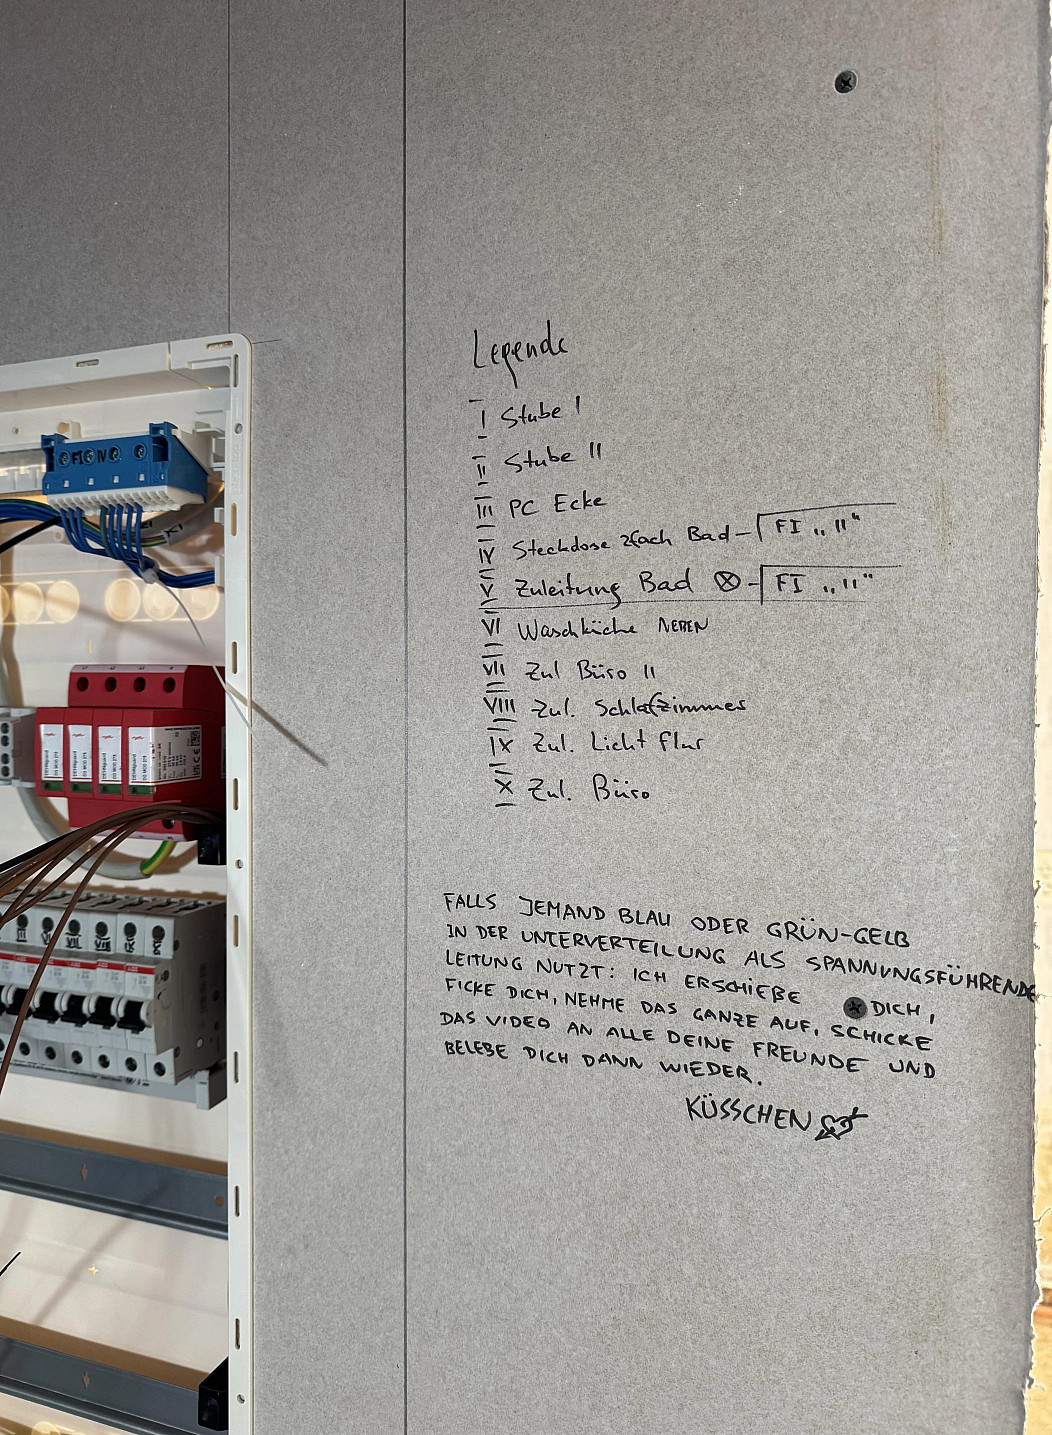 Legende
I Stube I
II Stube II
III PC Ecke
IV Steckdose 2fach Bad – FI „II“
V Zuleitung Bad ⊗ – FI „II“
VI Waschküche NEBEN
VII Zul Büro II
VIII Zul. Schlafzimmer
IX Zul. Licht Flur
X Zul. Büro
FALLS JEMAND BLAU ODER GRÜN-GELB
IN DER UNTERVERTEILUNG ALS SPANNUNGSFÜHRENDE
LEITUNG NUTZT: ICH ERSCHIEßE DICH,
FICKE DICH, NEHME DAS GANZE AUF, SCHICKE
DAS VIDEO AN ALLE DEINE FREUNDE UND
BELEBE DICH DANN WIEDER.
KÜSSCHEN
FI IV